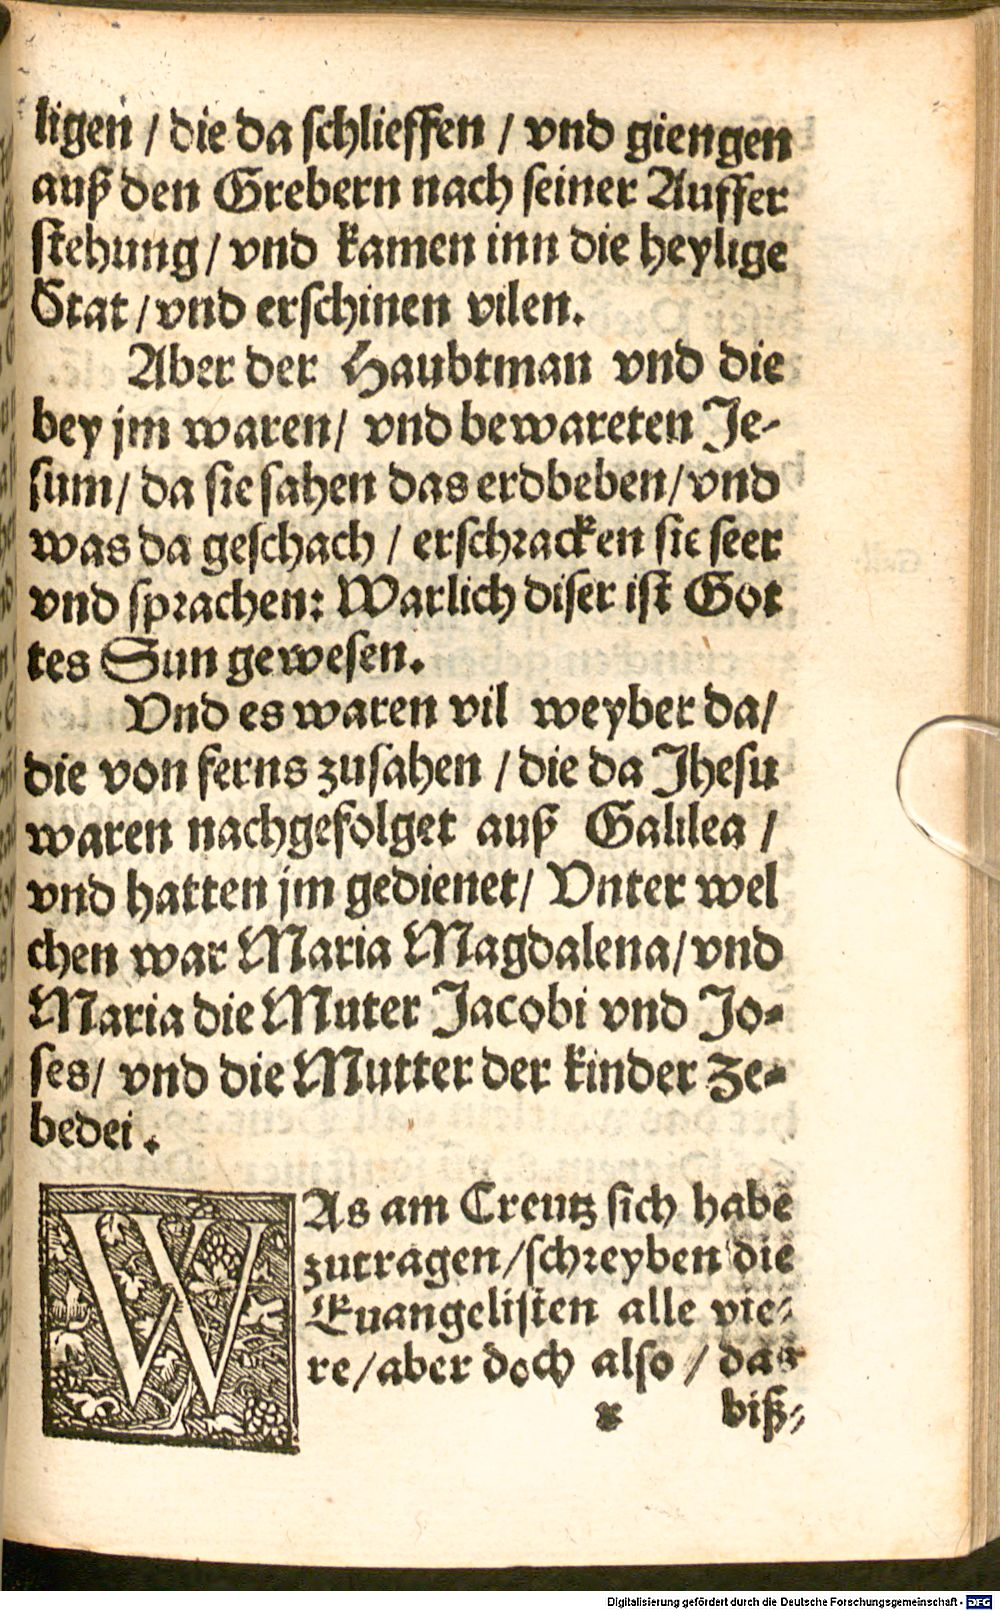 ligen / die da schlieffen / vnd giengen
auß den Grebern nach seiner Auffer
stehung / vnd kamen inn die heylige
Stat / vnd erschinen vilen.
Aber der Haubtman vnd die
bey jm waren / vnd bewareten Je-
sum / da sie sahen das erdbeben / vnd
was da geschach / erschracken sie seer
vnd sprachen: Warlich diser ist Got
tes Sun gewesen.
Vnd es waren vil weyber da /
die von ferns zusahen / die da Jhesu
waren nachgefolget auß Galilea /
vnd hatten jm gedienet / Vnter wel
chen war Maria Magdalena / vnd
Maria die Muter Jacobi vnd Jo-
ses / vnd die Mutter der kinder Ze-
bedei.
WAs am Creutz sich habe
zutragen / schreyben die
Euangelisten alle vie-
re / aber doch also / das
x biß-
Digitalisierung gefördert durch die Deutsche Forschungsgemeinschaft - DFG